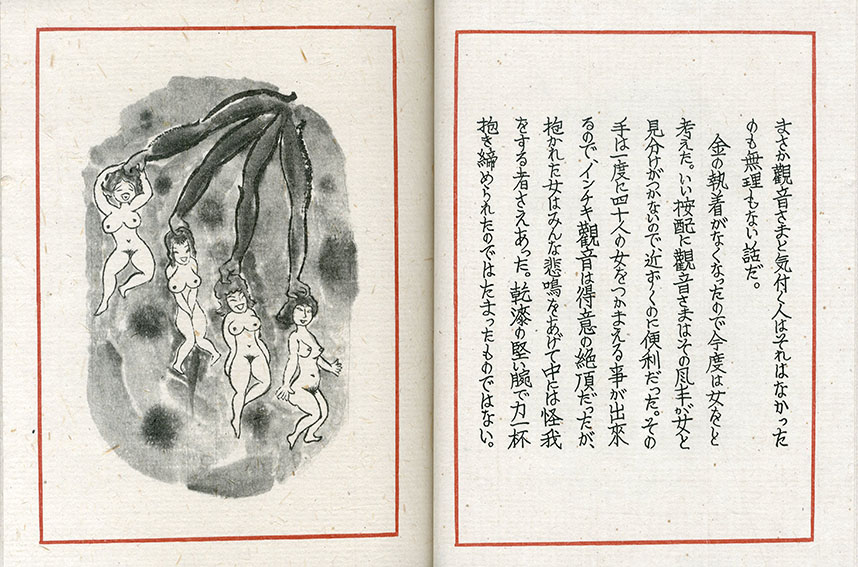 まさか觀音さまと気付く人はそれはなかった
のも無理もない話だ。
金の執着がなくなったので今度は女をと
考えた。いい按配に觀音さまはその風丰が女と
見分けがつかないので、近ずくのに便利だった。その
手は一度に四十人の女をつかまえる事が出來
るので、インチキ觀音は得意の絶頂だったが、
抱かれた女はみんな悲鳴をあげて中には怪我
をする者さえあった。乾漆の堅い腕で力一杯
抱き締められたのではたまったものではない。